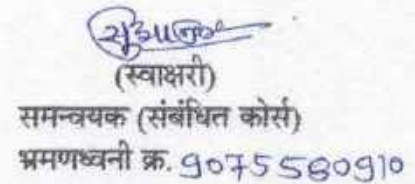 (स्वाक्षरी)
समन्वयक (संबंधित कोर्स)
भ्रमणध्वनी क्र. 9075580910